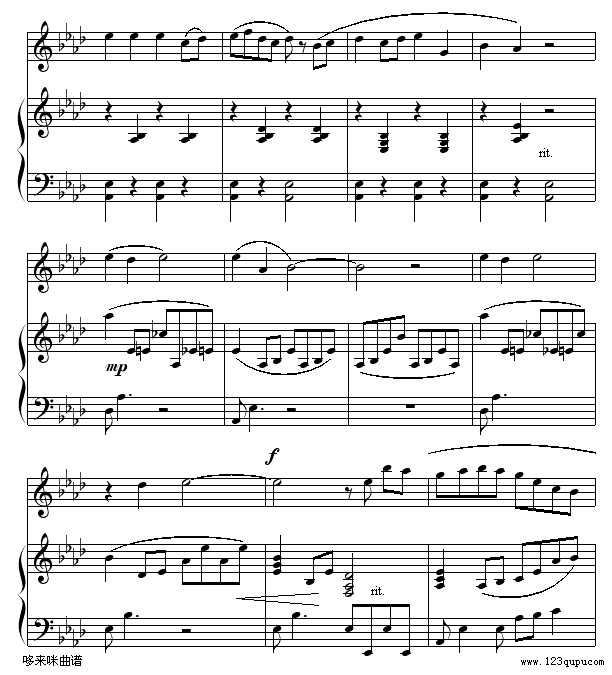 rit.
mp
f
rit.
哆来咪曲谱
www.123qupu.com